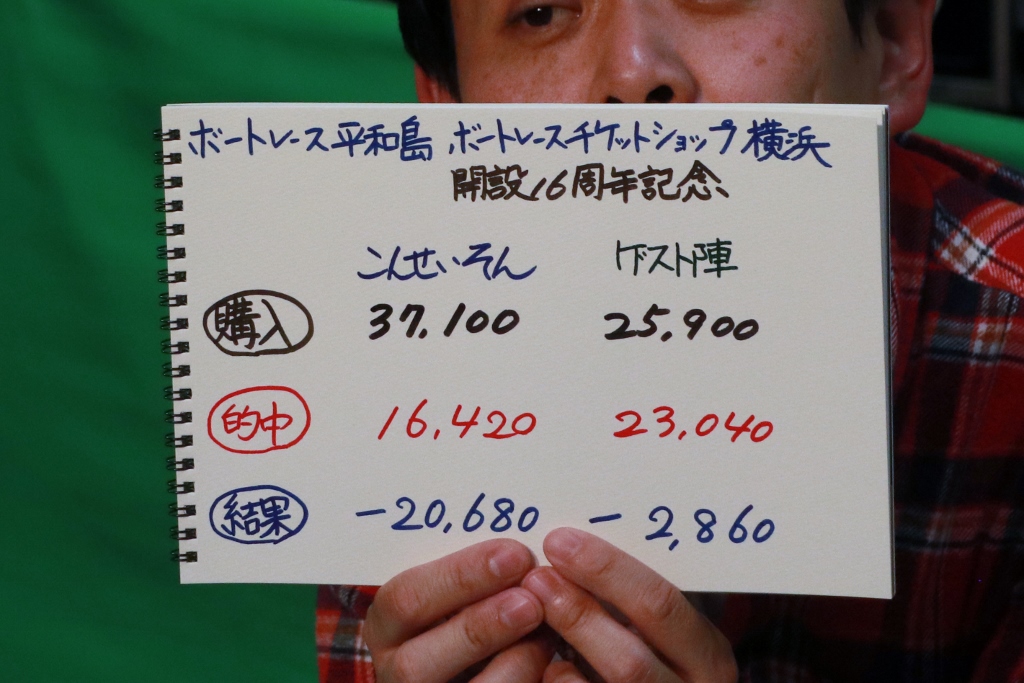 ボートレース平和島 ボートレースチケットショップ横浜
開設16周年記念
こんせいそん ゲスト陣
購入 37,100 25,900
的中 16,420 23,040
結果 -20,680 -2,860